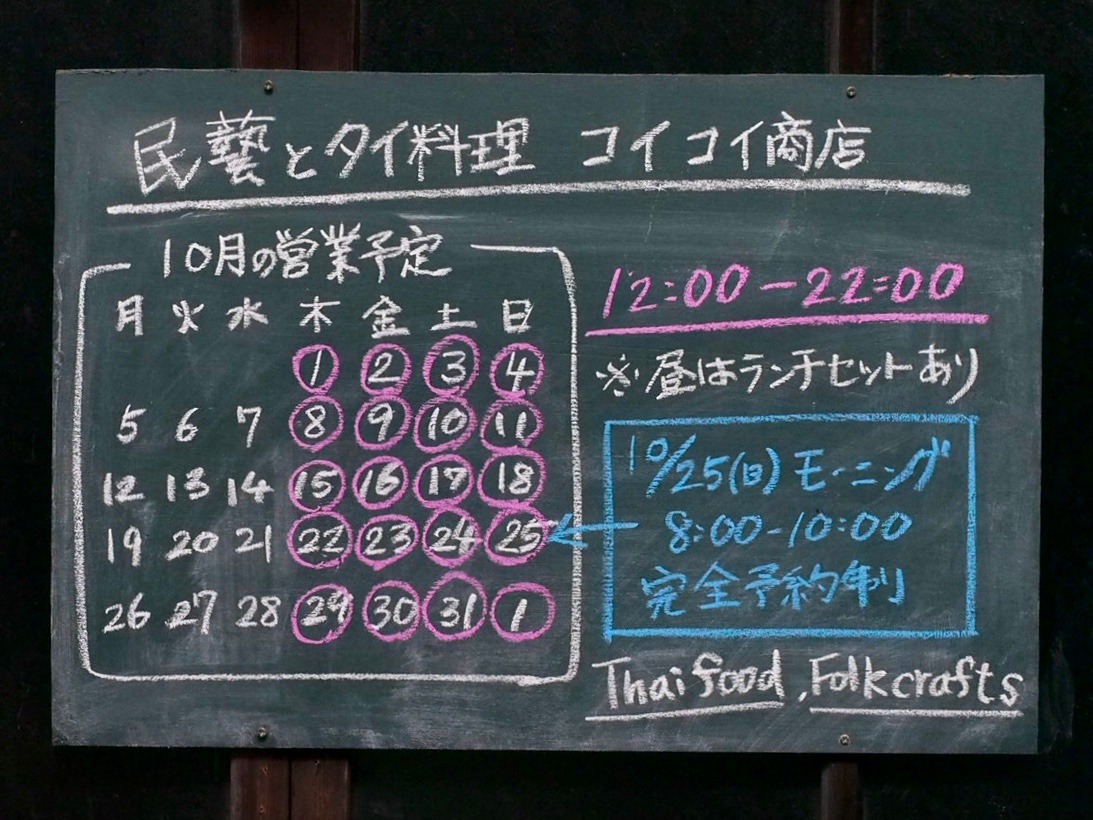 民藝とタイ料理 コイコイ商店
10月の営業予定
月 火 水 木 金 土 日
1 2 3 4
5 6 7 8 9 10 11
12 13 14 15 16 17 18
19 20 21 22 23 24 25
26 27 28 29 30 31 1
12:00-22:00
※昼はランチセットあり
10/25(日)モーニング
8:00-10:00
完全予約制
Thai food, Folkcrafts